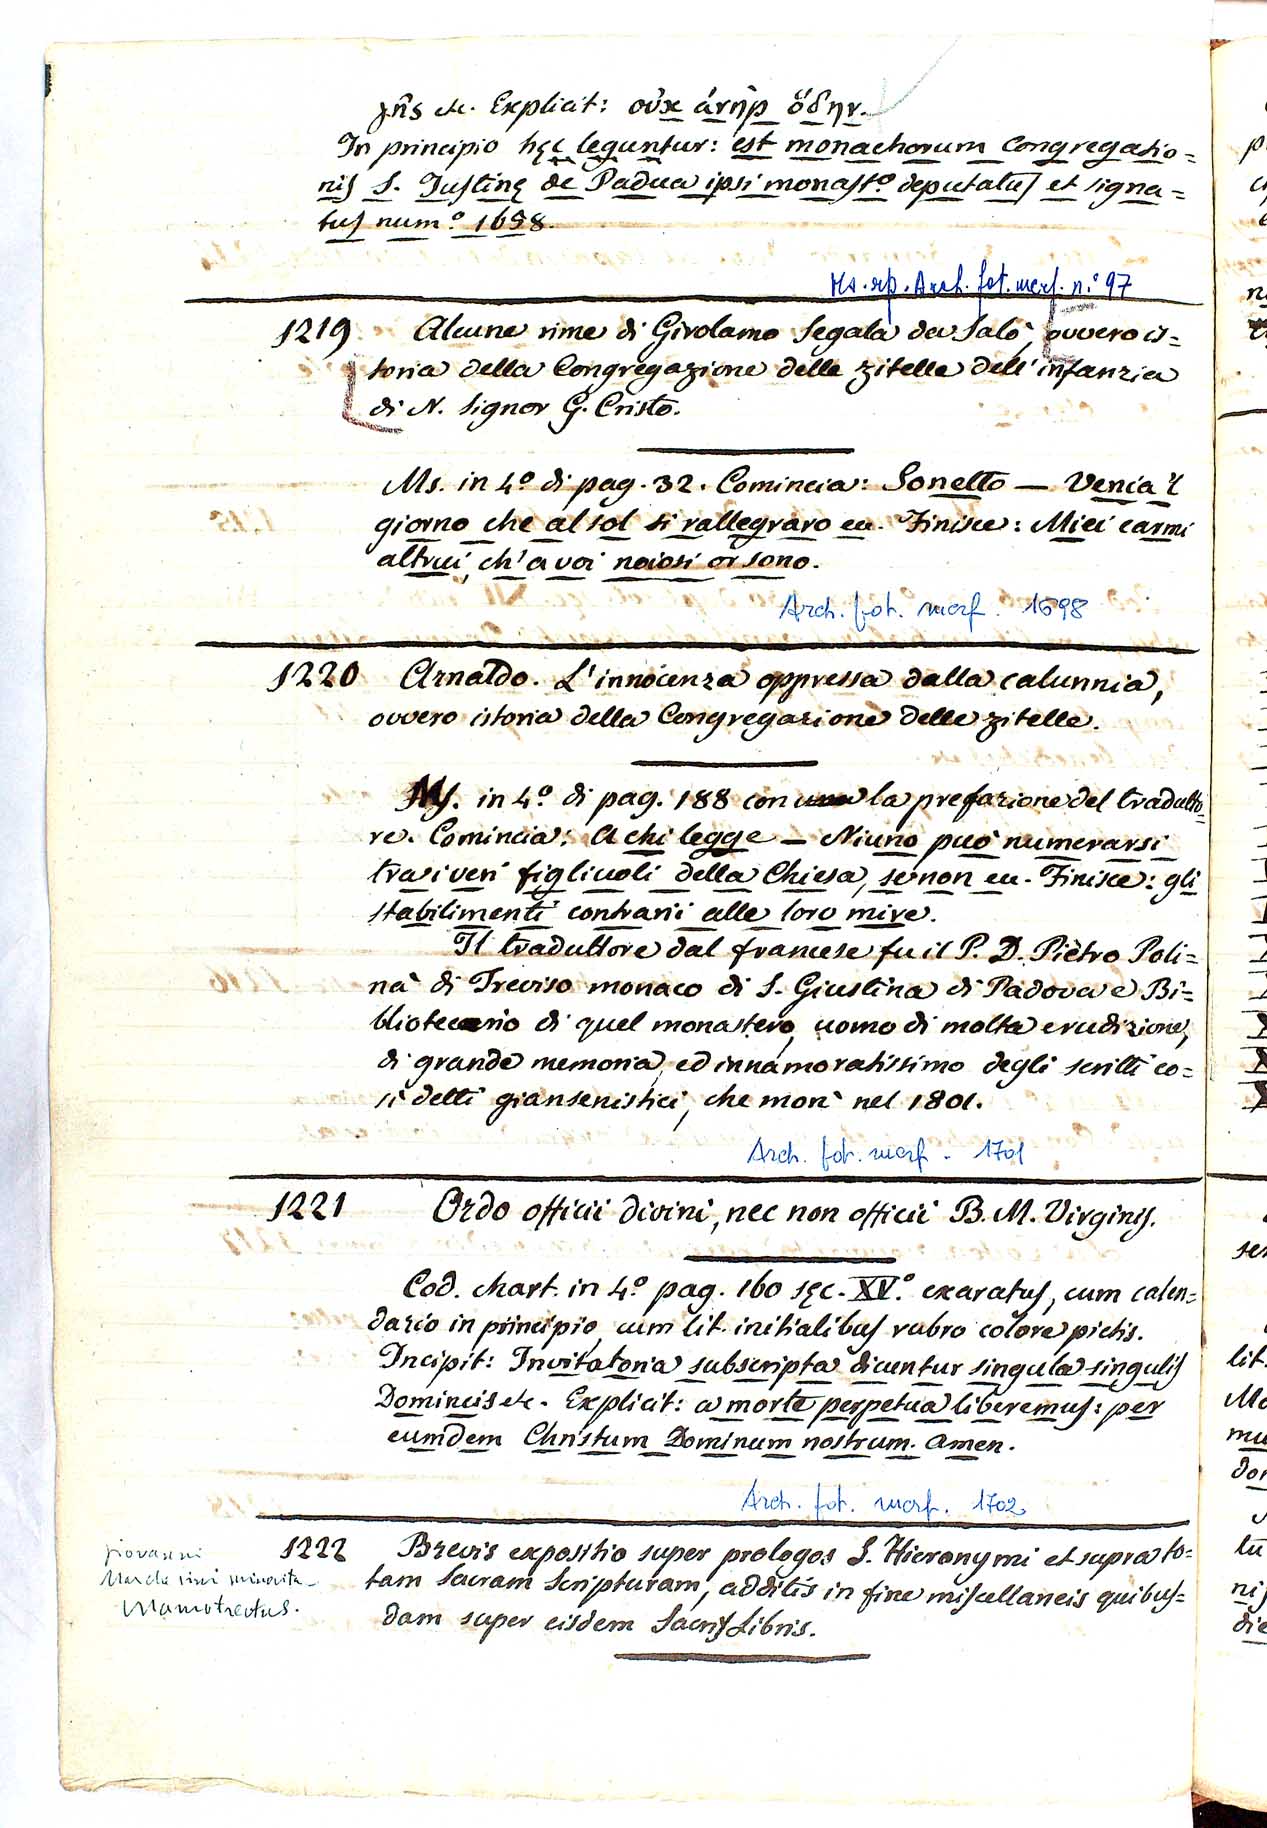 γῆς etc. Explicit: οὐχ ἀνὴρ ὅδην.
In principio hęc leguntur: est monachorum Congregatio=
nis S. Justinę de Padua ipsi monast.º deputatus et signa=
tus num.º 1658.
Arch. fot. marf. n.º 97
1219 Alcune rime di Girolamo Segala da Salò, ovvero is=
toria della Congregazione delle zitelle dell'infanzia
di N. Signor G. Cristo.
Ms. in 4.º di pag. 32. Comincia: Sonetto — Venia 'l
giorno che al sol si rallegraro ec. Finisce: Miei carmi
altrui, ch'a voi noiosi or sono.
Arch. fot. marf. 1698
1220 Arnaldo. L'innocenza oppressa dalla calunnia,
ovvero istoria della Congregazione delle zitelle.
Ms. in 4.º di pag. 188 con la prefazione del tradutto=
re. Comincia: A chi legge — Niuno può numerarsi
tra i veri figliuoli della Chiesa, se non ec. Finisce: gli
stabilimenti contrarii alle loro mire.
Il traduttore dal francese fu il P. D. Piètro Poli=
nà di Treviso monaco di S. Giustina di Padova e Bi=
bliotecario di quel monastero, uomo di molta erudizione,
di grande memoria, ed innamoratissimo degli scritti co=
sì detti giansenistici, che morì nel 1801.
Arch. fot. marf. 1701
1221 Ordo officii divini, nec non officii B. M. Virginis.
Cod. chart. in 4.º pag. 160 sęc. XV.º exaratus, cum calen=
dario in principio, cum lit. initialibus rubro colore pictis.
Incipit: Invitatoria subscripta dicuntur singula singulis
Dominicis etc. Explicit: a morte perpetua liberemus: per
eumdem Christum Dominum nostrum. Amen.
Arch. fot. marf. 1702
1222 Brevis expositio super prologos S. Hieronymi et supra to=
tam Sacram Scripturam, additis in fine miscellaneis quibus=
dam super eisdem Sacris Libris.
Giovanni
Marchesini minorita
Mamotrectus.